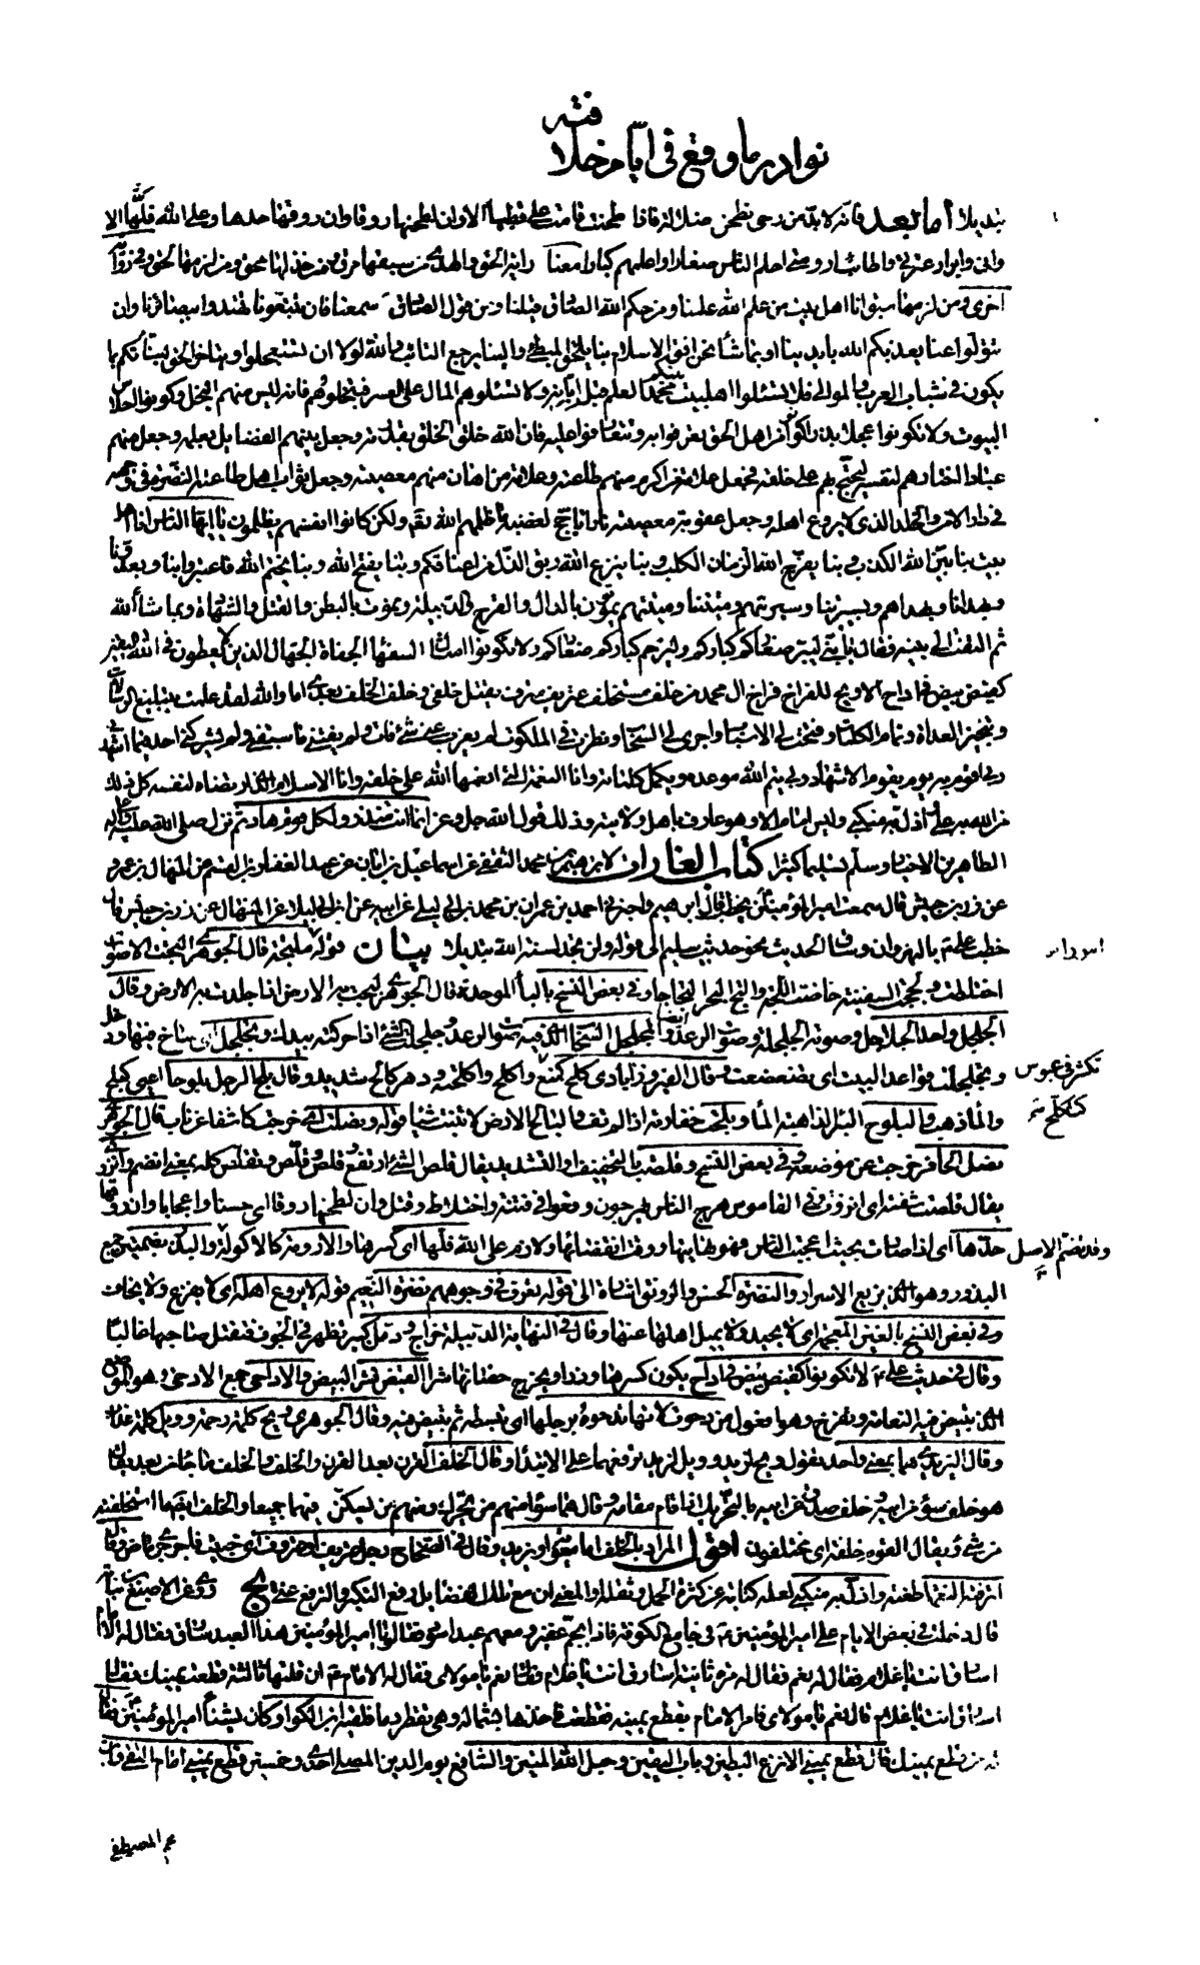 نوادر ما وقع في ايام خلافته
تبديلا اما بعد فانه لا بد من رحى تطحن ضلالة فاذا طحنت قامت على قطبها الا وان لطحنها روقا وان روقها حدها وعلى الله فلها الا
واني وابرار عترتي واطائب ارومتي احلم الناس صغارا واعلمهم كبارا معنا راية الحق والهدى من سبقها مرق ومن خذلها محق ومن لزمها لحق وفي رواية
اخرى ومن لزمها سبق انا اهل بيت من علم الله علمنا ومن حكم الله الصادق قيلنا ومن قول الصادق سمعنا فان تتبعونا تهتدوا ببصائرنا وان
تتولوا عنا يعذبكم الله بايدينا او بما شاء نحن افق الاسلام بنا يلحق المبطئ والينا يرجع التائب والله لولا ان تستعجلوا ويتاخر الحق لنبأتكم بما
يكون في شباب العرب والموالي فلا تسئلوا اهل بيت نبيكم محمد العلم قبل ابانه ولا تسئلوهم المال على العسر فتبخلوهم فانه ليس منهم البخل وكونوا احلاس
البيوت ولا تكونوا عجلا بذرا كونوا من اهل الحق تعرفوا به وتتعارفوا عليه فان الله خلق الخلق بقدرته وجعل بينهم الفضايل بعلمه وجعل منهم
عبادا اختارهم لنفسه ليحتج بهم على خلقه فجعل علامة من اكرم منهم طاعته وعلامة من اهان منهم معصيته وجعل ثواب اهل طاعته النضرة في وجهه
في دار الامن والخلد الذي لا يروع اهله وجعل عقوبة معصيته نارا تاجج لغضبه ما ظلمهم الله ولكن كانوا انفسهم يظلمون يا ايها الناس انا اهل
بيت بنا بين الله الكذب وبنا يفرج الله الزمان الكلب وبنا ينزع الله ربق الذل من اعناقكم وبنا يفتح الله وبنا يختم الله فاعتبروا بنا وبعدونا
وبهدانا وبهداهم وبسيرتنا وسيرتهم وميتتنا وميتتهم يموتون بالدال والقرح والدبيلة ونموت بالبطن والقتل والشهادة وبما شاء الله
ثم التفت الى بنيه فقال يا بني ليبر صغاركم كباركم وليرحم كباركم صغاركم ولا تكونوا امثال السفهاء الجفاة الجهال الذين لا يعطون في الله اليقين
كقيض بيض في اداح الا ويح للفراخ فراخ ال محمد من خلف مستخلف عتريف مترف يقتل خلفي وخلف الخلف بعدي اما والله لقد علمت تبليغ الرسالات
وتنجيز العداة وتمام الكلمات وفتحت لي الاسباب واجري لي السحاب ونظرت في الملكوت لم يعزب عني شئ فات ولم يفتني ما سبقني ولم يشركني احد فيما اشهدني
ربي اقوم به يوم يقوم الاشهاد وبي يتم الله موعده ويكمل كلماته وانا النعمة التي انعمها الله على خلقه وانا الاسلام الذي ارتضاه لنفسه كل ذلك
من الله به علي واذل به منكبي وليس امام الا وهو عارف باهل ولايته وذلك قول الله جل وعز انما انت منذر ولكل قوم هاد ثم نزل صلى الله عليه واله
الطاهرين الاخيار وسلم تسليما كثيرا كتاب الغارات لابرهيم بن محمد الثقفي عن اسماعيل بن ابان عن عبد الغفار بن القسم عن المنهال بن عمرو
عن زر بن حبيش قال سمعت امير المؤمنين يخطب قال ابرهيم واخبرني احمد بن عمران بن محمد بن ابي ليلى عن ابيه عن ابن ابي ليلى عن المنهال عن زر بن حبيش قال
خطب علي ع بالنهروان وساق الحديث نحو حديث سليم الى قوله ولن تجد لسنة الله تبديلا بيان قوله ملجلجة قال الجوهري التجت الاصوات
اختلطت ولججت السفينة خاضت اللجة والتج البحر التجاجا وفي بعض النسخ بالباء الموحدة قال الجوهري لبجت به الارض اذا جلدت به الارض وقال
الجلجل واحد الجلاجل وصوته الجلجلة وصوت الرعد ايضا والمجلجل السحاب الذي فيه صوت الرعد وجلجلت الشئ اذا حركته بيدك وتجلجل اي ساخ فيها ودخل
وتجلجلت قواعد البيت اي تضعضعت وقال الفيروزابادي كلح كمنع واكلح واكلحته ودهر كالح شديد وقال بلح الرجل بلوحا اعيى كبلح
والماء ذهب والبلوح البئر الذاهبة الماء وبلحت خفارته اذا لم تف والبالح الارض لا تنبت شيئا قوله ونصلت خرجت كاشفا عن ناب قال الجوهري
نصل الحافر خرجت من موضعه وفي بعض النسخ وقلصت بالتخفيف او التشديد يقال قلص الشئ ارتفع وقلص وقلص وتقلص كله بمعنى انضم وانزوى
يقال قلصت شفته اي انزوت وفي القاموس هرج الناس يهرجون وقعوا في فتنة واختلاط وقتل وان لطحنها روقا اي حسنا واعجابا وان روقها
حدها اي اذا صارت بحيث اعجبت الناس فهو نهايتها ووقت انقضائها ولازم على الله فلها اي كسرها والارومة كالاكولة والبذر بضمتين جمع
البذور وهو الذي يذيع الاسرار والنضرة الحسن والرونق اشارة الى قوله تعرف في وجوههم نضرة النعيم قوله لا يروع اهله اي لا يفزع ولا يخاف
وفي بعض النسخ بالغين المعجمة اي لا يحيد ولا يميل اهلها عنها وقال في النهاية الدبيلة خراج ودمل كبير تظهر في الجوف فتقتل صاحبها غالبا
وقال في حديث علي ع لا تكونوا كقيض بيض في اداح يكون كسرها وزرا ويخرج حضانها شرا القيض قشر البيض والاداحي جمع الادحي وهو الموضع
الذي تبيض فيه النعامة وتفرخ وهو افعول من دحوت لانها تدحوه برجلها اي تبسطه ثم تبيض فيه وقال الجوهري ويح كلمة رحمة وويل كلمة عذاب
وقال اليزيدي هما بمعنى واحد تقول ويح لزيد وويل لزيد ترفعهما على الابتداء وقال الخلف القرن بعد القرن والخلف والخلف ما جاء من بعد يقال
هو خلف سوء من ابيه وخلف صدق من ابيه بالتحريك اذا قام مقامه وقال هما سواء منهم من يحرك ومنهم من يسكن فيهما جميعا والخلف ايضا ما استخلفته
من شئ ويقال القوم خلفة اي مختلفون اقول المراد بالخلف اما معوية او يزيد وقال في الصحاح رجل عتريف وعتروف اي خبيث فاجر جري ماض وقال
اترفته النعمة اطغته واذل به منكبي لعله كناية عن كثرة الحمل وثقله والمعنى ان مع تلك الفضايل رفع التكبر والترفع عني يج روي عن الاصبغ بن نباتة
قال دخلت في بعض الايام على امير المؤمنين ع في جامع الكوفة فاذا بجم غفير ومعهم عبد اسود فقالوا يا امير المؤمنين هذا العبد سارق فقال له الامام
اسارق انت يا غلام فقال له نعم فقال له مرة ثانية اسارق انت يا غلام فقال نعم يا مولاي فقال له الامام ع ان قلتها ثالثة قطعت يمينك فقال
اسارق انت يا غلام قال نعم يا مولاي فامر الامام بقطع يمينه فقطعت فاخذها بشماله وهي تقطر دما فلقيه ابن الكوا وكان يشنأ امير المؤمنين فقال
له من قطع يمينك قال قطع يميني الانزع البطين وباب اليقين وحبل الله المتين والشافع يوم الدين المصلي احدى وخمسين قطع يميني امام التقى وابن
تكشر في عبوس
كتكلح
وقد تضم الاصل
عم المصطفى